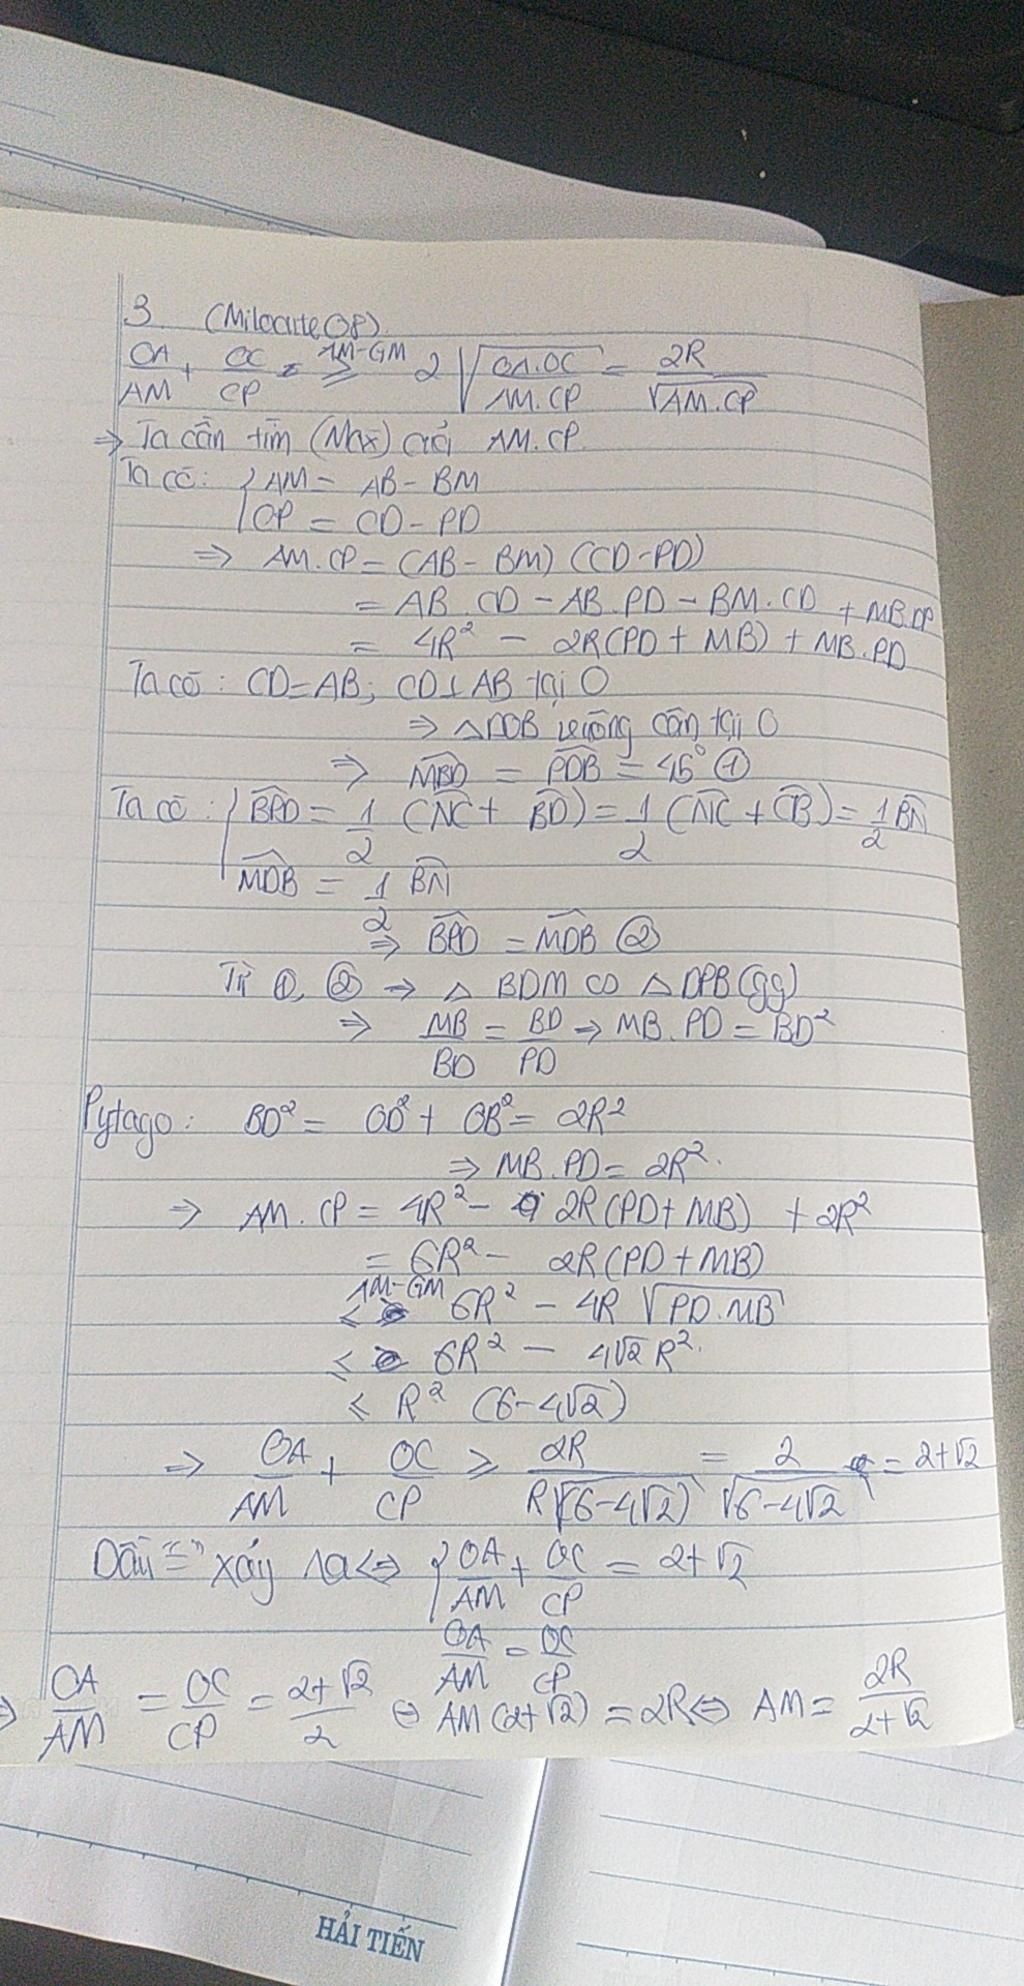 3. (Milocute08)
OA/AM + OC/CP ≥ AM-GM 2√(OA.OC/AM.CP) = 2R/√(AM.CP)
⇒ Ta cần tìm (Max) của AM.CP.
Ta có: { AM = AB - BM
CP = CD - PD
⇒ AM.CP = (AB - BM)(CD - PD)
= AB.CD - AB.PD - BM.CD + MB.DP
= 4R² - 2R(PD + MB) + MB.PD
Ta có: CD = AB; CD ⊥ AB tại O
⇒ △DOB vuông cân tại O
⇒ MBD = PDB = 45° ①
Ta có: { BPD = 1/2 (NC + BD) = 1/2 (NC + CB) = 1/2 BN
MDB = 1/2 BN
⇒ BPD = MDB ②
Từ ①, ② → △ BDM ∽ △ DPB (gg)
⇒ MB/BD = BD/PD → MB.PD = BD²
Pytago: BD² = OD² + OB² = 2R²
⇒ MB.PD = 2R².
⇒ AM.CP = 4R² - 2R(PD + MB) + 2R²
= 6R² - 2R(PD + MB)
AM-GM ≤ 6R² - 4R √(PD.MB)
≤ 6R² - 4√2 R².
≤ R² (6 - 4√2)
⇒ OA/AM + OC/CP ≥ 2R/R√(6-4√2) = 2/√(6-4√2) = 2+√2
Dấu "=" xảy ra ⇔ { OA/AM + OC/CP = 2+√2
OA/AM = OC/CP
⇒ OA/AM = OC/CP = 2+√2/2 ⇔ AM(2+√2) = 2R ⇔ AM = 2R/2+√2
HẢI TIẾN